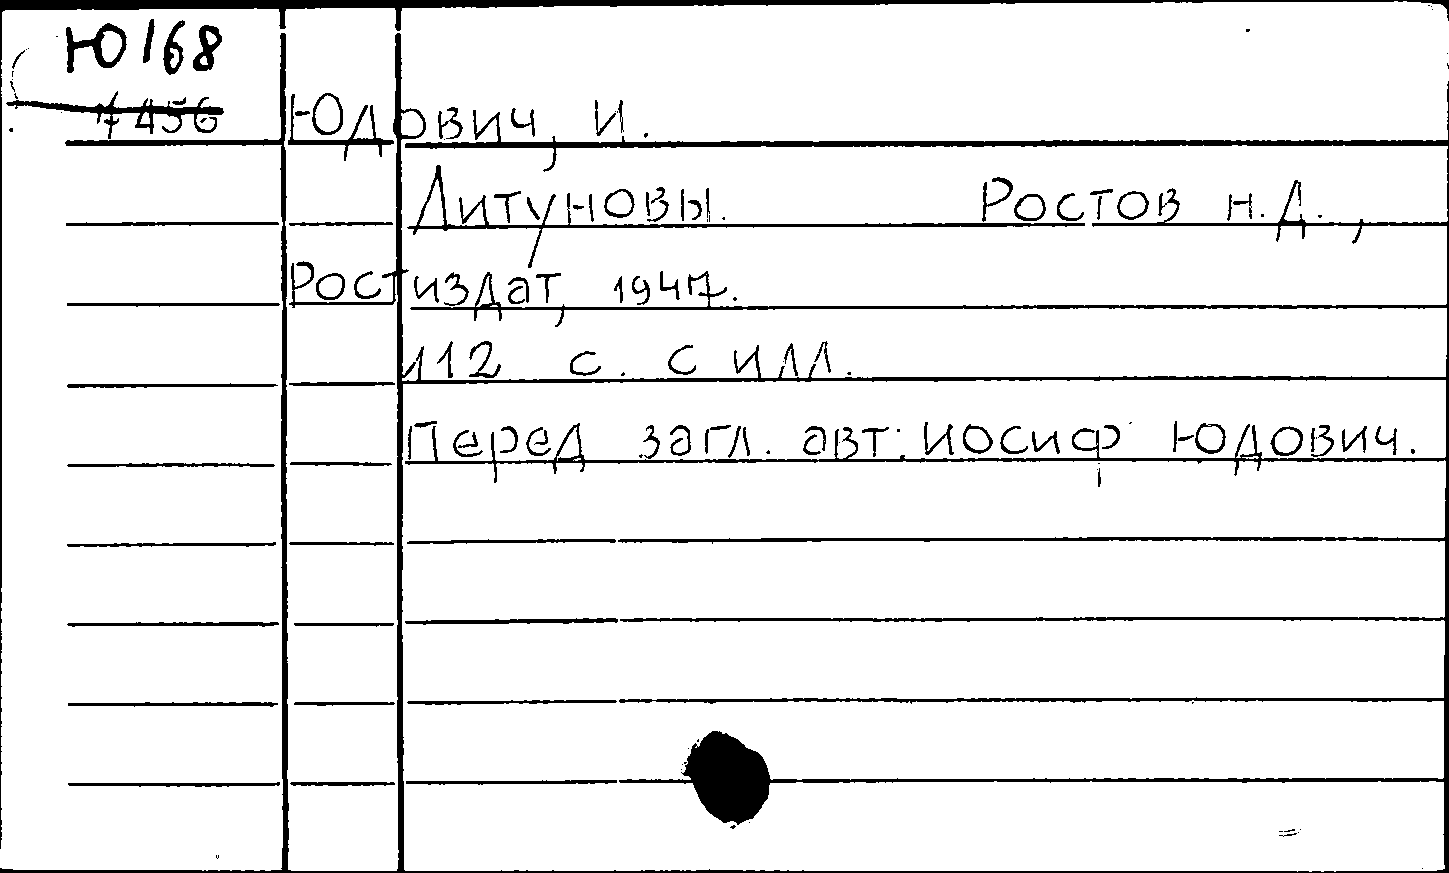 Ю168
7456
Юдович, И.
Литуновы. Ростов н.Д.,
Ростиздат, 1947.
112 с. с илл.
Перед загл. авт: Иосиф Юдович.